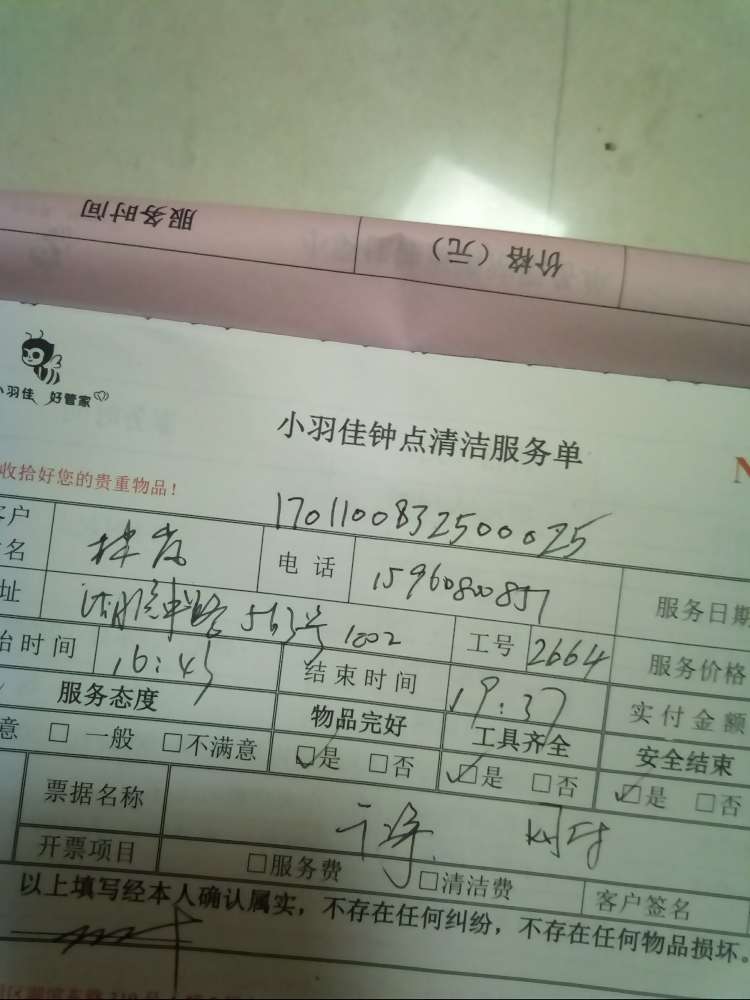 服务时间 价格（元）
小羽佳 好管家
小羽佳钟点清洁服务单
收拾好您的贵重物品！
1701100832500025
客户 电话 15960800857 服务日期
名
址 563号1002 工号 2664 服务价格
始时间 16:45 结束时间 19:37 实付金额
服务态度 物品完好 工具齐全 安全结束
意 □一般 □不满意 ☑是 □否 ☑是 □否 ☑是 □否
票据名称
开票项目 □服务费 □清洁费 客户签名
以上填写经本人确认属实，不存在任何纠纷，不存在任何物品损坏。